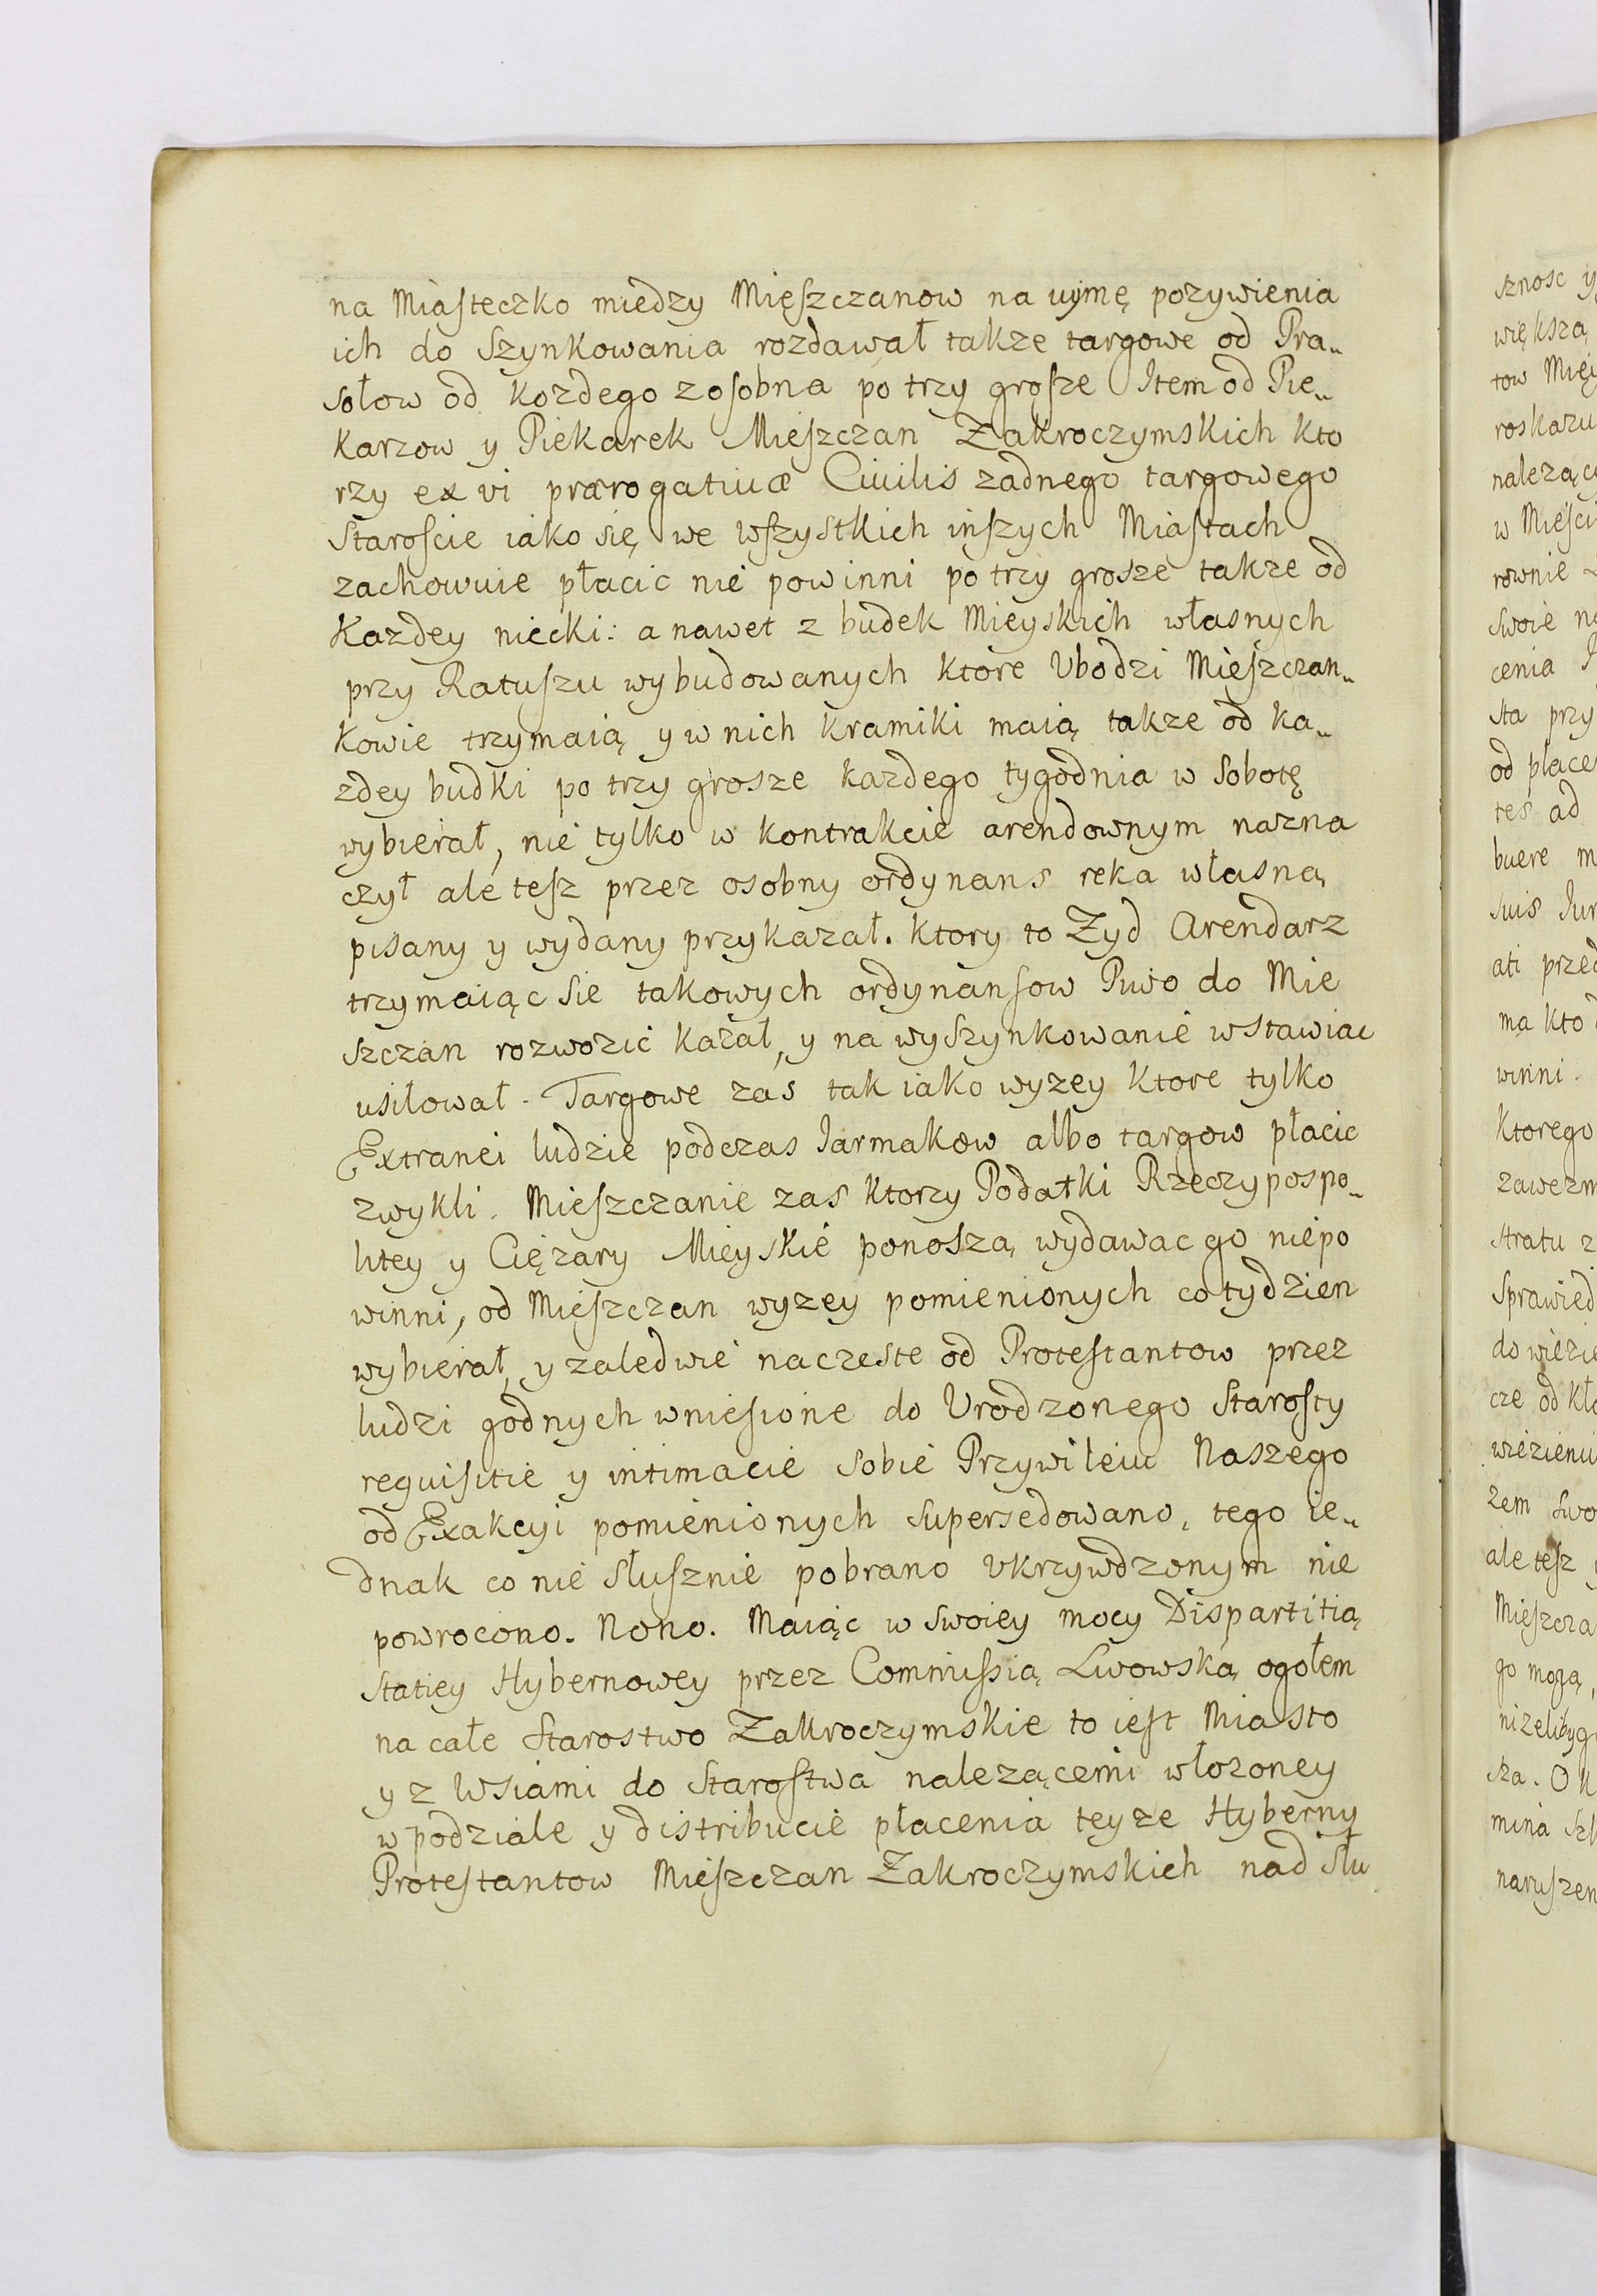 na Miasteczko miedzy Mięszczanow na uymę pozywienia
ich do Szynkowania rozdawał takze targowe od Pra„
sołow od kozdego zosobna po trzy grosze Item od Pie„
karzow y Piekarek Mieszczan Zakroczymskich kto
rzy ex vi prærogatiuæ Ciuilis zadnego targowego
Staroscie iako się we wszystkich inszych Miastach
zachowuie płacic nie powinni po trzy grosze takze od
Kazdey niecki: a nawet z budek Mieyskich własnych
przy Ratuszu wybudowanych ktore Vbodzi Mieszczan„
kowie trzymaią y w nich kramiki maią takze od ka„
zdey budki po trzy grosze kazdego tygodnia w Sobotę
wybierał, nie tylko w kontrakcie arendownym nazna
czył ale tesz przez osobny ordynans reka własną
pisany y wydany przykazał. Ktory to Zyd Arendarz
trzymaiąc sie takowych ordynansow Piwo do Mie
szczan rozwozic kazał, y na wyszynkowanie wstawiac
usiłował. Targowe zas tak iako wyzey ktore tylko
Extranei ludzie podczas Iarmakow albo targow płacic
zwykli. Mieszczanie zas ktorzy Podatki Rzeczypospo„
litey y Ciężary Mieyskie ponoszą wydawac go niepo
winni, od Mieszczan wyzey pomienionych co tydzien
wybierał, y zaledwie na czeste od Protestantow przez
ludzi godnych wniesione do Vrodzonego Starosty
requisitie y intimacie sobie Przywileiu Naszego
od Exakcyi pomienionych supersedowano, tego ie„
dnak co nie słusznie pobrano vkrzywdzonym nie
powrocono. Nono. Maiąc w swoiey mocy Dispartitią
statiey Hybernowey przez Commissią Lwowską ogołem
na całe Starostwo Zakroczymskie to iest Miasto
y z Wsiami do Starostwa nalezącemi włozoney
w podziale y distribucie płacenia teyze Hyberny
Protestantow Mieszczan Zakroczymskich nad słu
sznosc
większa
tow
roskazu
w
rownie
swoie
cenia
sta przy
od płace
tes ad
buere m
suis Iur
ati przed
ma kto
winni.
Ktorego
zawezm
stratu z
Sprawied
do wiezie
cze od kło
wiezieniu
zem swo
ale tesz y
Mieszcza
go mogą,
nizeliby
sza. O
mina
naruszen